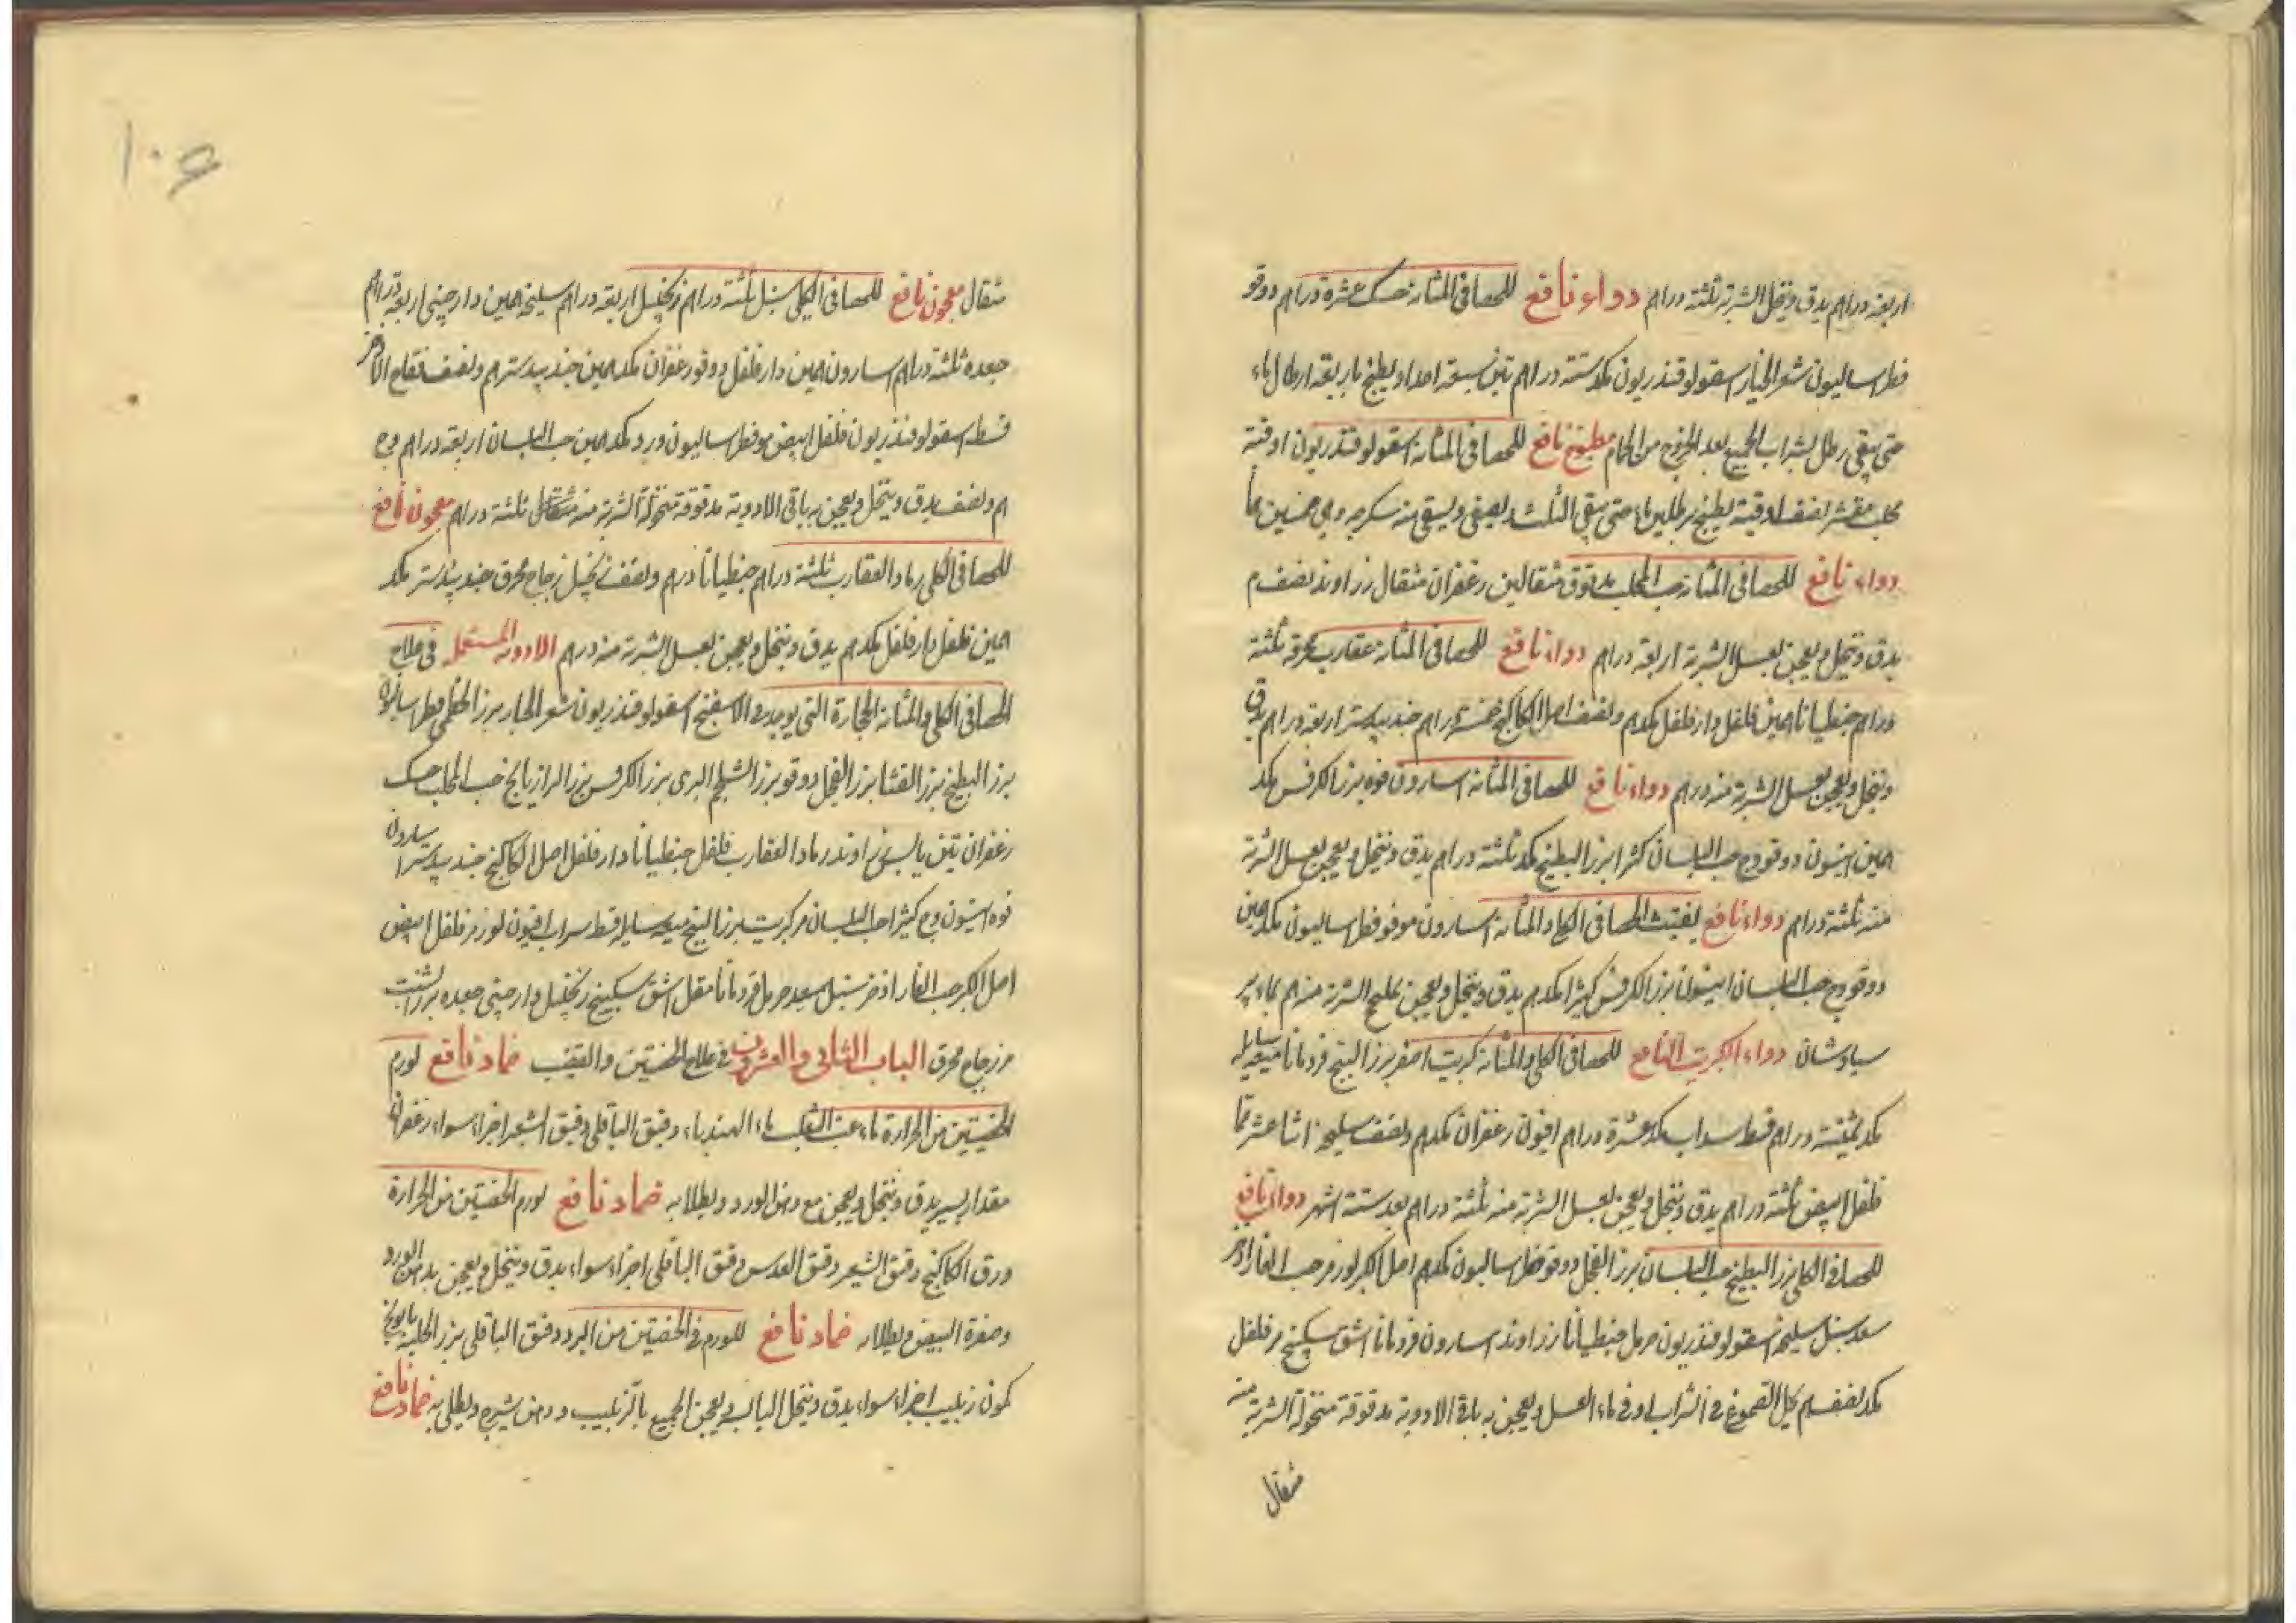 اربعة دراهم يدق وينخل الشربة ثلثة دراهم دواء نافع للحصا فى المثانة حسك عشرة دراهم دوقو
فطراساليون شعر الجبار اسقولوقندريون مكد ستة دراهم تين سبعة اعداد يطبخ باربعة ارطال ماء
حتى يبقى رطل يشراب الجميع بعد الخروج من الحمام مطبوخ نافع للحصا فى المثانة اسقولوقندريون اوقية
محلب مقشر نصف اوقية يطبخ برطلين ماء حتى يبقى الثلث ويصفى ويسقى منه سكرجه وهى خمسين
دواء نافع للحصا فى المثانة حب المحلب مدقوق مثقالين زعفران مثقال زراوند نصف م
يدق وينخل ويعجن بعسل الشربة اربعة دراهم دواء نافع للحصا فى المثانة عقارب محرقة ثلثة
دراهم جنطيانا همين فلفل دارفلفل مكدهم ونصف اصل الكاكنج خمسة دراهم جندبيدستر اربعة دراهم يدق
وينخل ويعجن بعسل الشربة منه درهم دواء نافع للحصا فى المثانة اسارون فوه بزر الكرفس مكد
همين انيسون دوقو وج حب البلسان كثيرا بزر البطيخ مكد ثلثة دراهم يدق وينخل ويعجن بعسل الشربة
منه ثلثة دراهم دواء نافع يفتت الحصا فى الكلا والمثانة اسارون مو فو فطراساليون مكد همين
دوقو وج حب البلسان انيسون بزر الكرفس كثيرا مكدهم يدق وينخل ويعجن الشربة منه م بماء بر
سياوشان دواء الكبريت النافع للحصا فى الكلى والمثانة كبريت اصفر بزر البنج قردمانا ميعه سايله
مكد ثمنية دراهم قسط سداب مكد عشرة دراهم افيون زعفران مكدهم ونصف سليخه اثنا عشر
فلفل ابيض ثلثة دراهم يدق وينخل ويعجن بعسل الشربة منه ثلثة دراهم بعد ستة اشهر دواء نافع
للحصا فى الكلى بزر البطيخ حب البلسان بزر الفجل دوقو فطراساليون مكدهم اصل الكبر لوز مر حب الغار اذخر
سعد سنبل سليخه اسقولوقندريون حرمل جنطيانا زراوند اسارون قردمانا اشق سكبينج مر فلفل
مكد نصف م يحل الصموغ فى الشراب او فى ماء العسل ويعجن به باقى الادوية مدقوقة منخولة الشربة منه
مثقال
١٠٦
مثقال معجون نافع للحصا فى الكلى سنبل ثلثة دراهم زنجبيل اربعة دراهم سليخه همين دارچينى اربعة دراهم
جعده ثلثة دراهم اسارون همين دارفلفل دوقو زعفران مكد همين جندبيدستر هم ونصف فقاح الاذخر
قسط اسقولوقندريون فلفل ابيض مو فطراساليون ورد مكد همين حب البلسان اربعة دراهم وج
هم ونصف يدق وينخل ويعجن به باقى الادوية مدقوقة منخولة الشربة منه مثقال ثلثة دراهم معجون نافع
للحصا فى الكلى رماد العقارب ثلثة دراهم جنطيانا درهم ونصف زنجبيل زجاج محرق جندبيدستر مكد
همين فلفل دارفلفل مكدهم يدق وينخل ويعجن بعسل الشربة منه درهم الادوية المستعمله فى علاج
الحصا فى الكلى والمثانة الحجارة التى يوجد فى الاسفنج اسقولوقندريون شعر الجبار بزر الخطمى فطراساليون
بزر البطيخ بزر القثا بزر الفجل دوقو بزر الشلجم البرى بزر الكرفس بزر الرازيانج حب المحلب حسك
زعفران تين يابس زراوند رماد العقارب فلفل جنطيانا دارفلفل اصل الكاكنج جندبيدستر اسارون
فوه انيسون وج كثيرا حب البلسان مر كبريت بزر البنج ميعه سايله قسط سداب افيون لوز مر فلفل ابيض
اصل الكبر حب الغار اذخر سنبل سعد حرمل قردمانا مقل اشق سكبينج زنجبيل دارچينى جعده بزر الشبت
مر زجاج محرق الباب الثانى والعشرون فى علاج الخصيتين والقضيب ضماد نافع لورم
الخصيتين من الحرارة ماء عنب الثعلب ماء الهندباء دقيق الباقلى دقيق الشعير اجزاء سواء زعفران
مقدار يسير يدق وينخل ويعجن مع دهن الورد ويطلا به ضماد نافع لورم الخصيتين من الحرارة
ورق الكاكنج دقيق الشعير دقيق العدس دقيق الباقلى اجزاء سواء يدق وينخل ويعجن بدهن الورد
وصفرة البيض ويطلا به ضماد نافع للورم فى الخصيتين من البرد دقيق الباقلى بزر الحلبه بابونج
كمون زبيب اجزاء سواء يدق وينخل اليابس ويعجن الجميع بالزبيب ودهن شيرج ويطلى به ضماد نافع